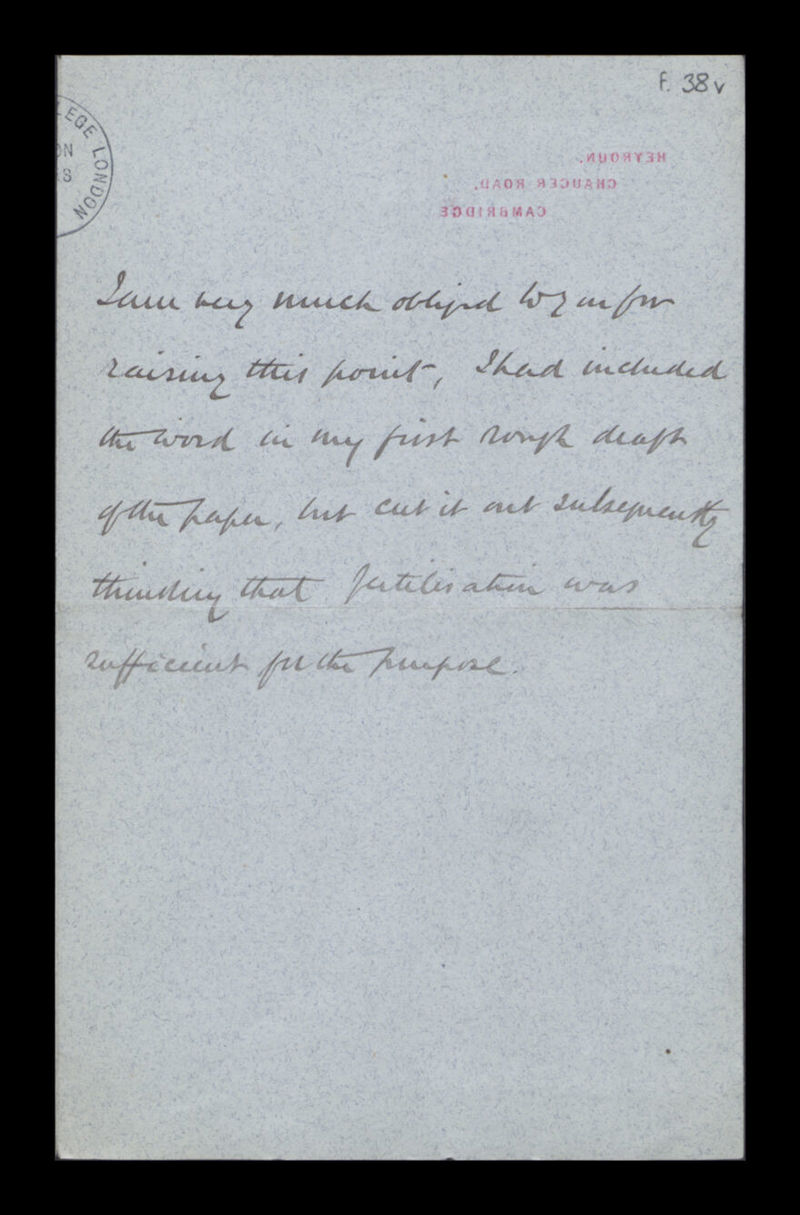 f. 38v
LEGE LONDON
ON
AS
HEYROUN.
CHAUCER ROAD,
CAMBRIDGE
I am very much obliged to you for
raising this point, I had included
the word in my first rough draft
of the paper, but cut it out subsequently
thinking that fertilisation was
sufficient for the purpose.